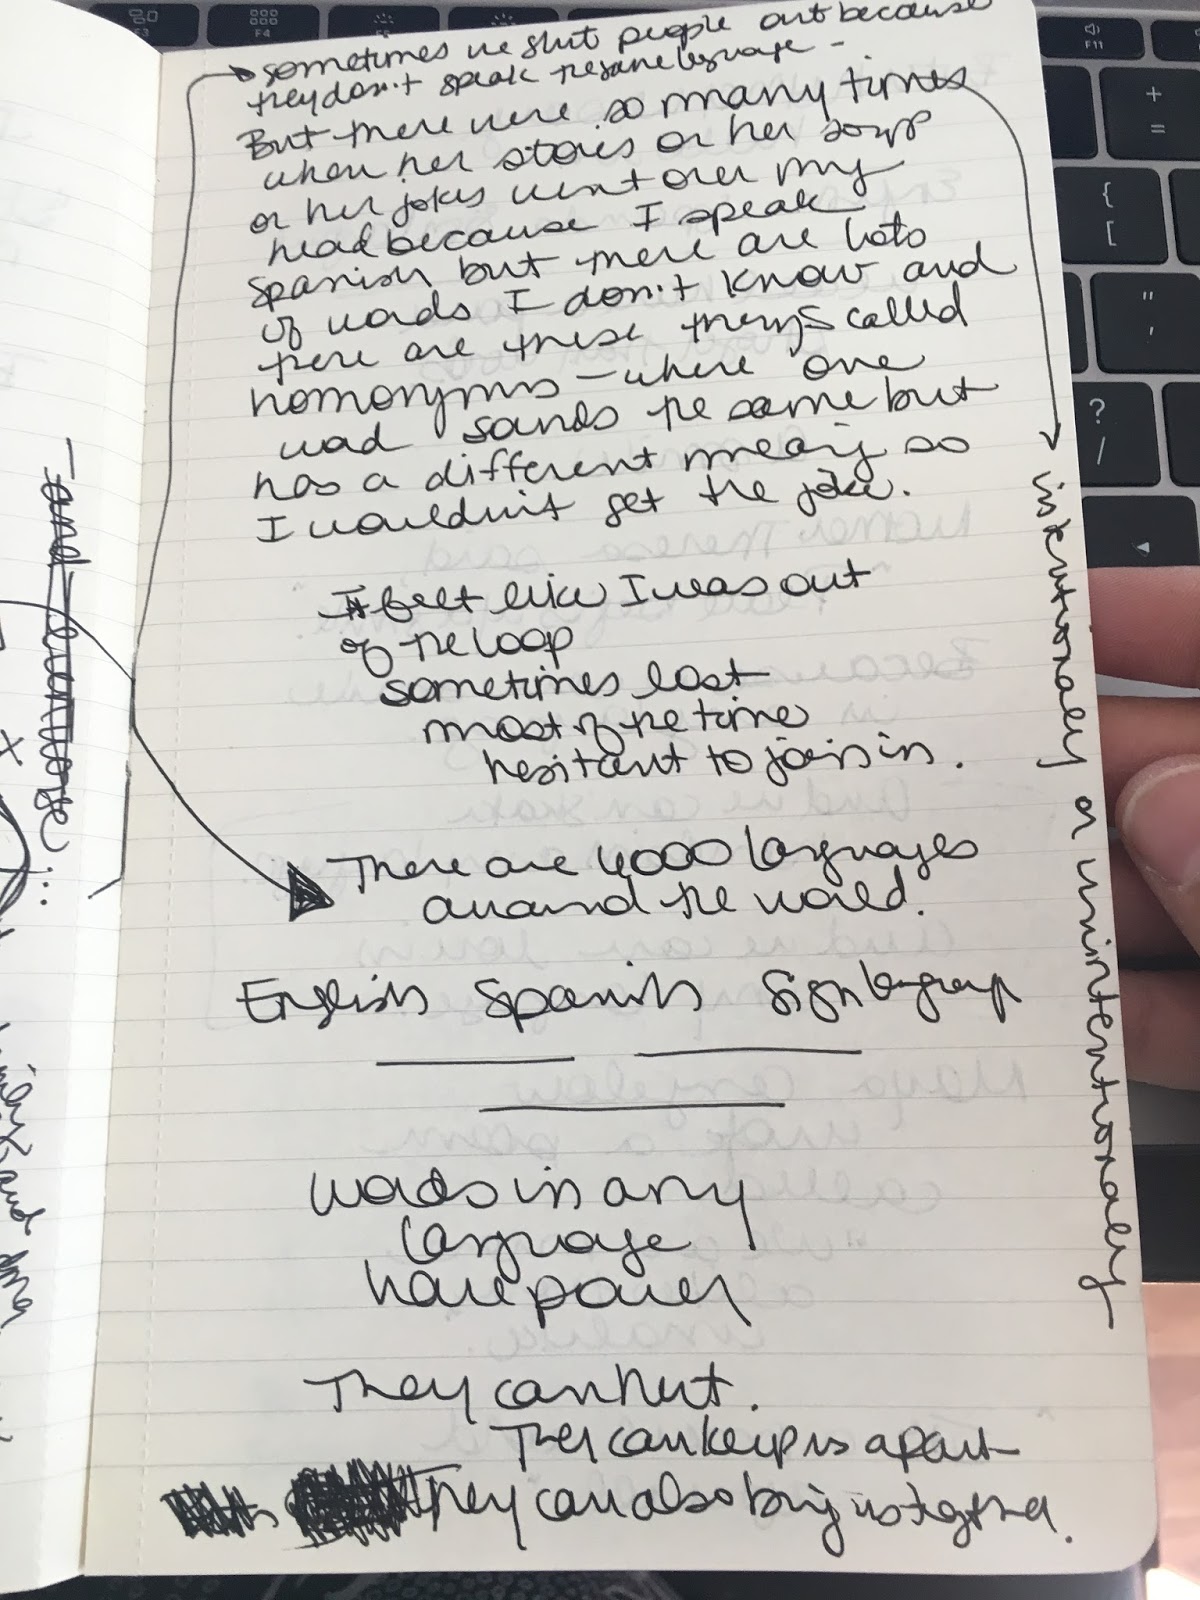 sometimes we shut people out because
they don't speak the same language -
But there were so many times
when her stories or her songs
or her jokes went over my
head because I speak
Spanish but there are lots
of words I don't know and
there are these things called
homonyms - where one
word sounds the same but
has a different meaning so
I wouldn't get the joke.
I felt like I was out
of the loop
sometimes lost
most of the time
hesitant to join in.
There are 4000 languages
around the world.
English Spanish Sign language
words in any
language
have power
They can hurt.
They can keep us apart
They can also bring us together.
intentionally or unintentionally
- and language...
F3
F4
F11
+
=
{
[
"
'
?
/